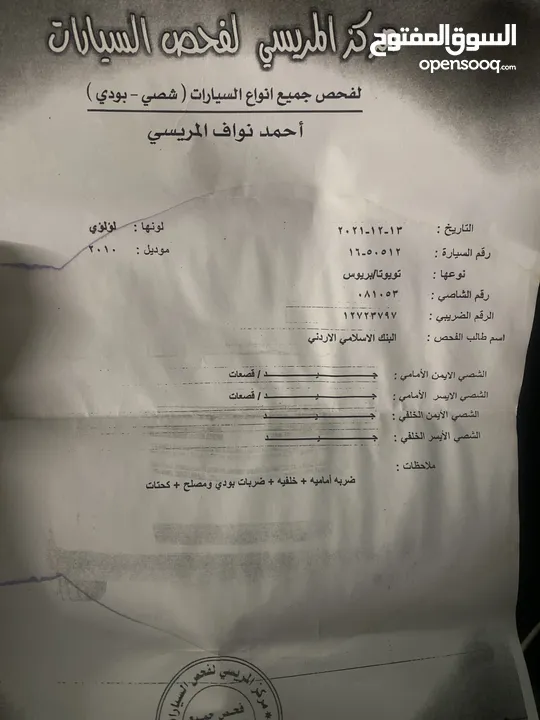 السوق المفتوح
opensooq.com
مركز المريسي لفحص السيارات
لفحص جميع انواع السيارات ( شصي - بودي )
أحمد نواف المريسي
التاريخ : ١٣-١٢-٢٠٢١ لونها : لؤلؤي
رقم السيارة : ٥٠٥١٢-١٦ موديل : ٢٠١٠
نوعها : تويوتا/بريوس
رقم الشاصي : ٠٨١٠٥٣
الرقم الضريبي : ١٢٧٢٣٧٩٧
اسم طالب الفحص : البنك الاسلامي الاردني
الشصي الايمن الأمامي : جـــــيـــــد / قصعات
الشصي الايسر الأمامي : جـــــيـــــد / قصعات
الشصي الأيمن الخلفي : جـــــيـــــد
الشصي الأيسر الخلفي : جـــــيـــــد
ملاحظات :
ضربه أماميه + خلفيه + ضربات بودي ومصلح + كحتات
مركز المريسي لفحص السيارات
فحص جميع